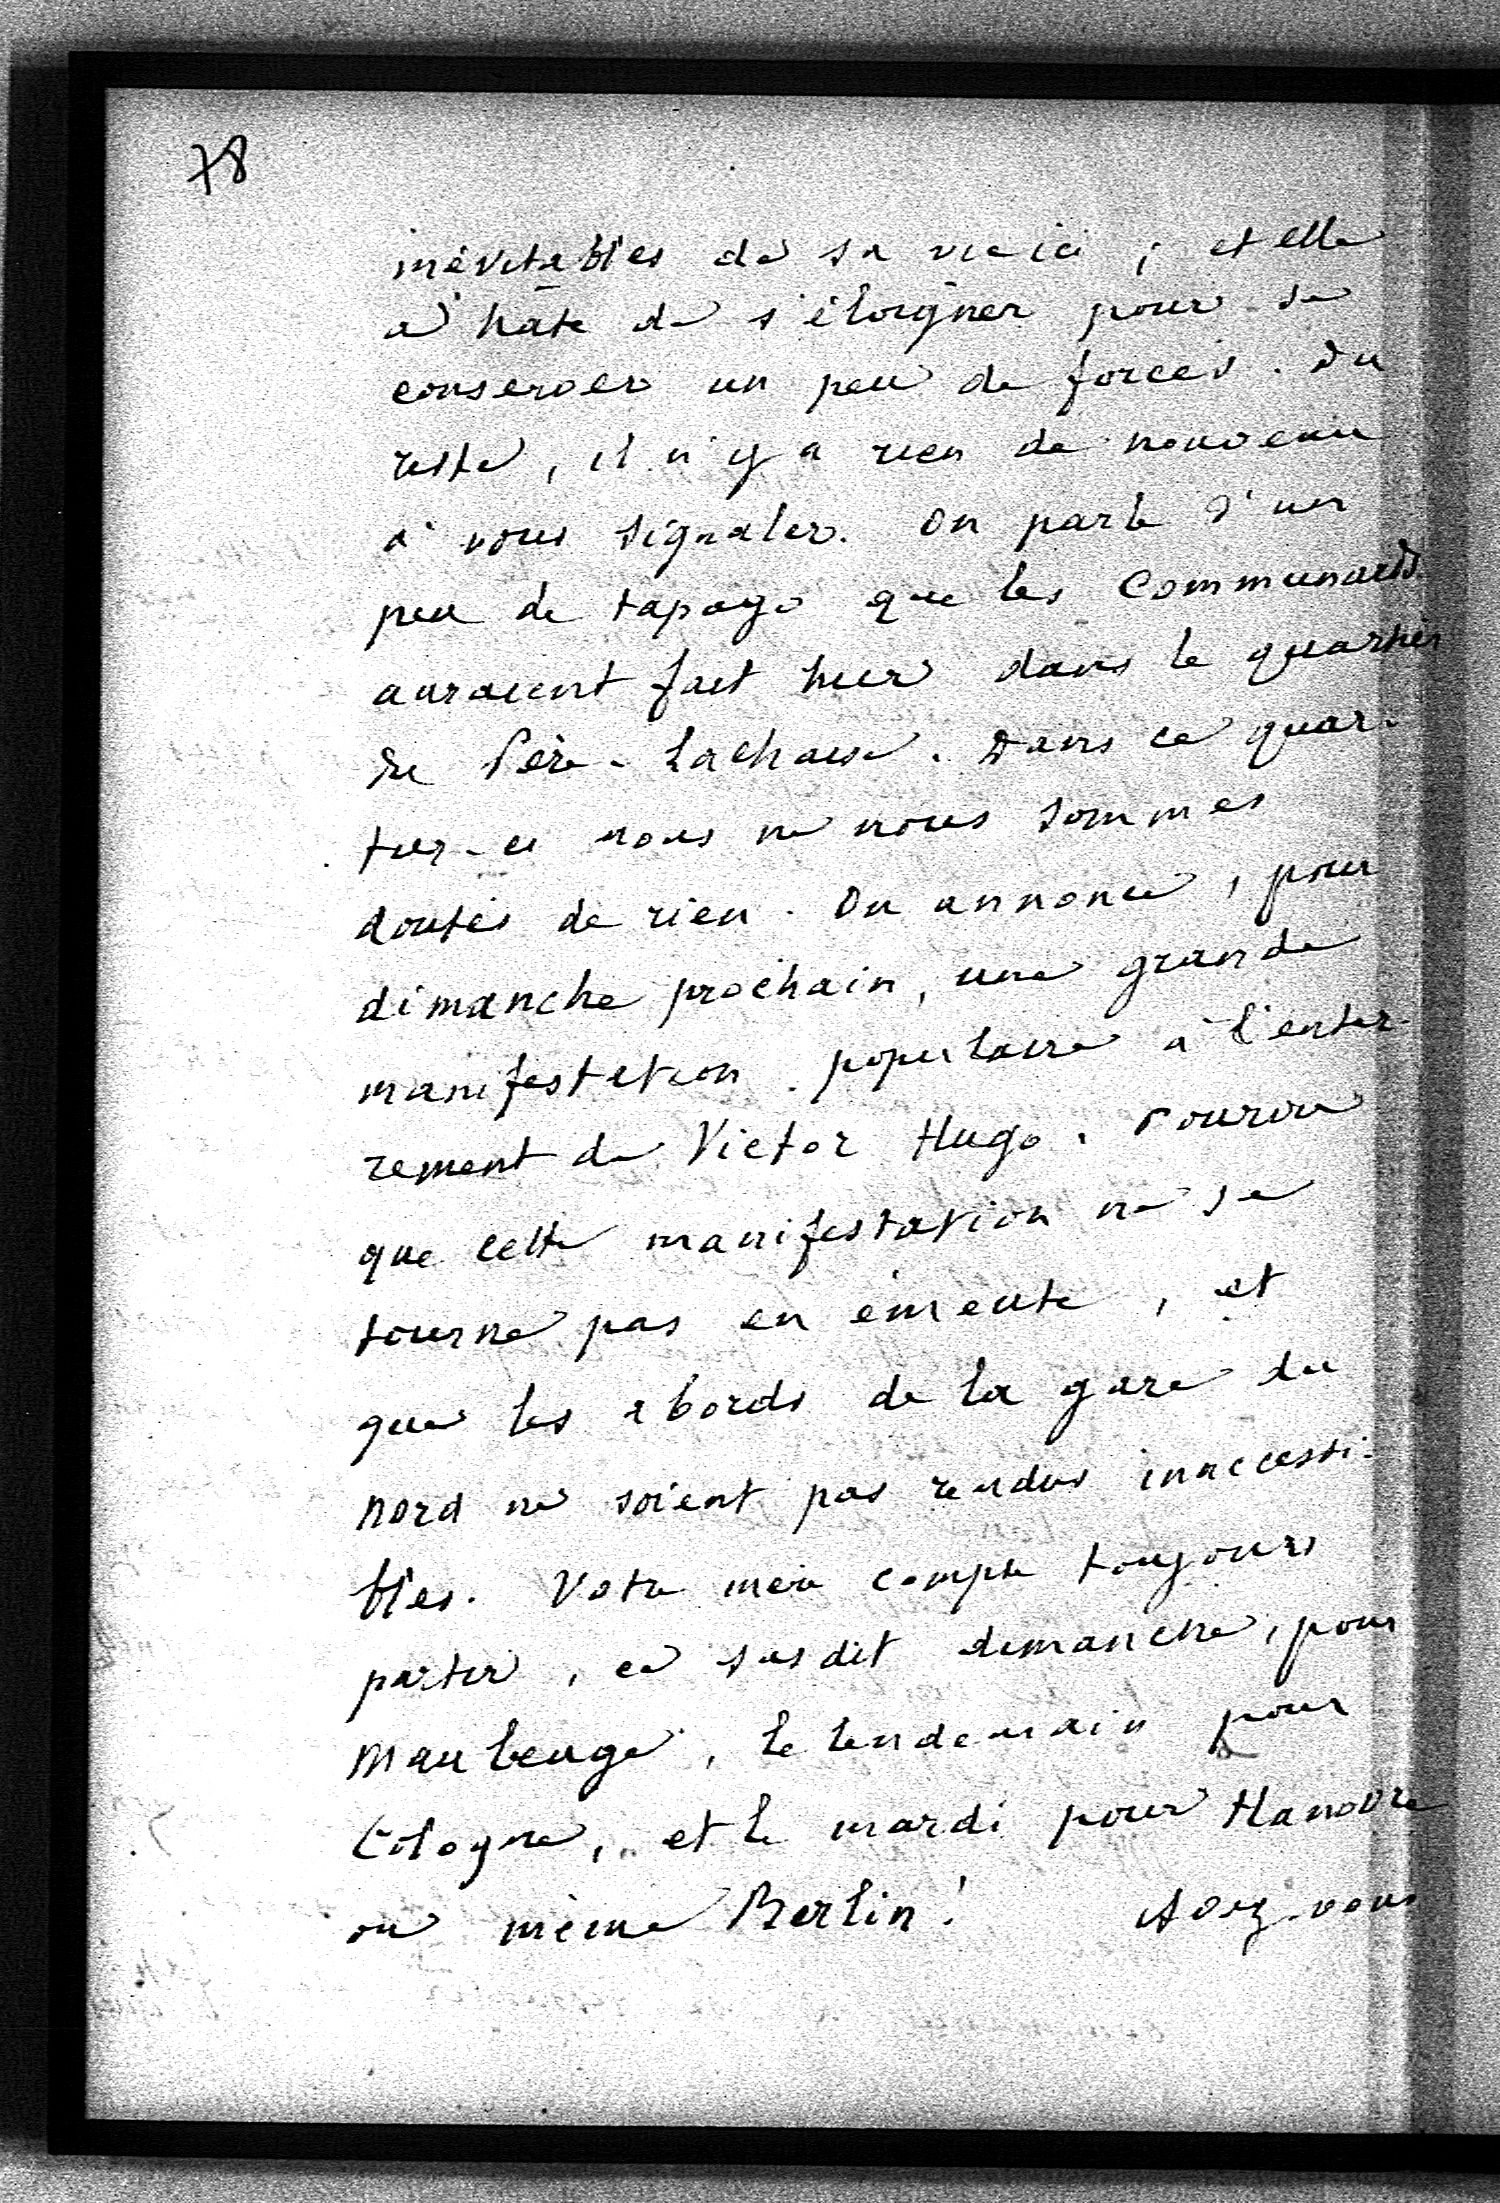 78
inévitables de sa vie ici ; et elle
a hâte de s'éloigner pour se
conserver un peu de forces. Du
reste, il n'y a rien de nouveau
à vous signaler. On parle d'un
peu de tapage que les Communards
auraient fait hier dans le quartier
du Père-Lachaise. Dans ce quar-
tier-ci nous ne nous sommes
doutés de rien. On annonce, pour
dimanche prochain, une grande
manifestation populaire à l'enter-
rement de Victor Hugo. Pourvu
que cette manifestation ne se
tourne pas en émeute, et
que les abords de la gare du
nord ne soient pas rendus inaccessi-
bles. Votre mère compte toujours
partir, ce susdit dimanche, pour
Maubeuge, le lendemain pour
Cologne, et le mardi pour Hanovre
ou même Berlin! Avez-vous